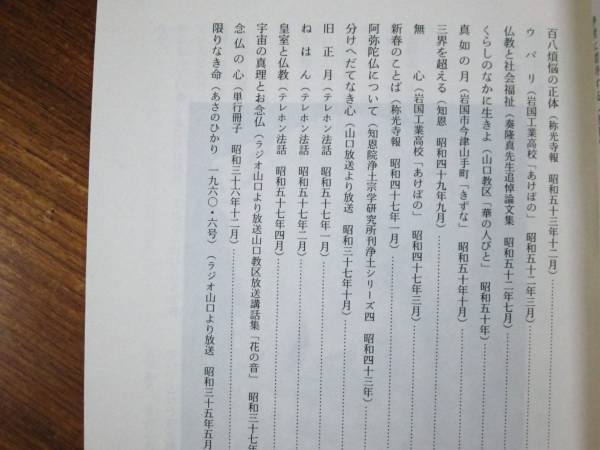 百八煩悩の正体（称光寺報　昭和五十三年十二月）
ウパリ（岩国工業高校「あけぼの」　昭和五十二年三月）
仏教と社会福祉（秦隆真先生追悼論文集　昭和五十二年七月）
くらしのなかに生きよ（山口教区「華の人びと」　昭和五十年）
真如の月（岩国市今津山手町「きずな」　昭和五十年十月）
三界を超える（知恩　昭和四十九年九月）
無心（岩国工業高校「あけぼの」　昭和四十七年三月）
新春のことば（称光寺報　昭和四十七年一月）
阿弥陀仏について（知恩院浄土宗学研究所刊浄土シリーズ四　昭和四十三年）
分けへだてなき心（山口放送より放送　昭和三十七年十月）
旧正月（テレホン法話　昭和五十七年一月）
ねはん（テレホン法話　昭和五十七年二月）
皇室と仏教（テレホン法話　昭和五十七年四月）
宇宙の真理とお念仏（ラジオ山口より放送山口教区放送講話集「花の音」　昭和三十七年
念仏の心（単行冊子　昭和三十六年十二月）
限りなき命（あさのひかり　一九六〇・六号）（ラジオ山口より放送　昭和三十五年五月